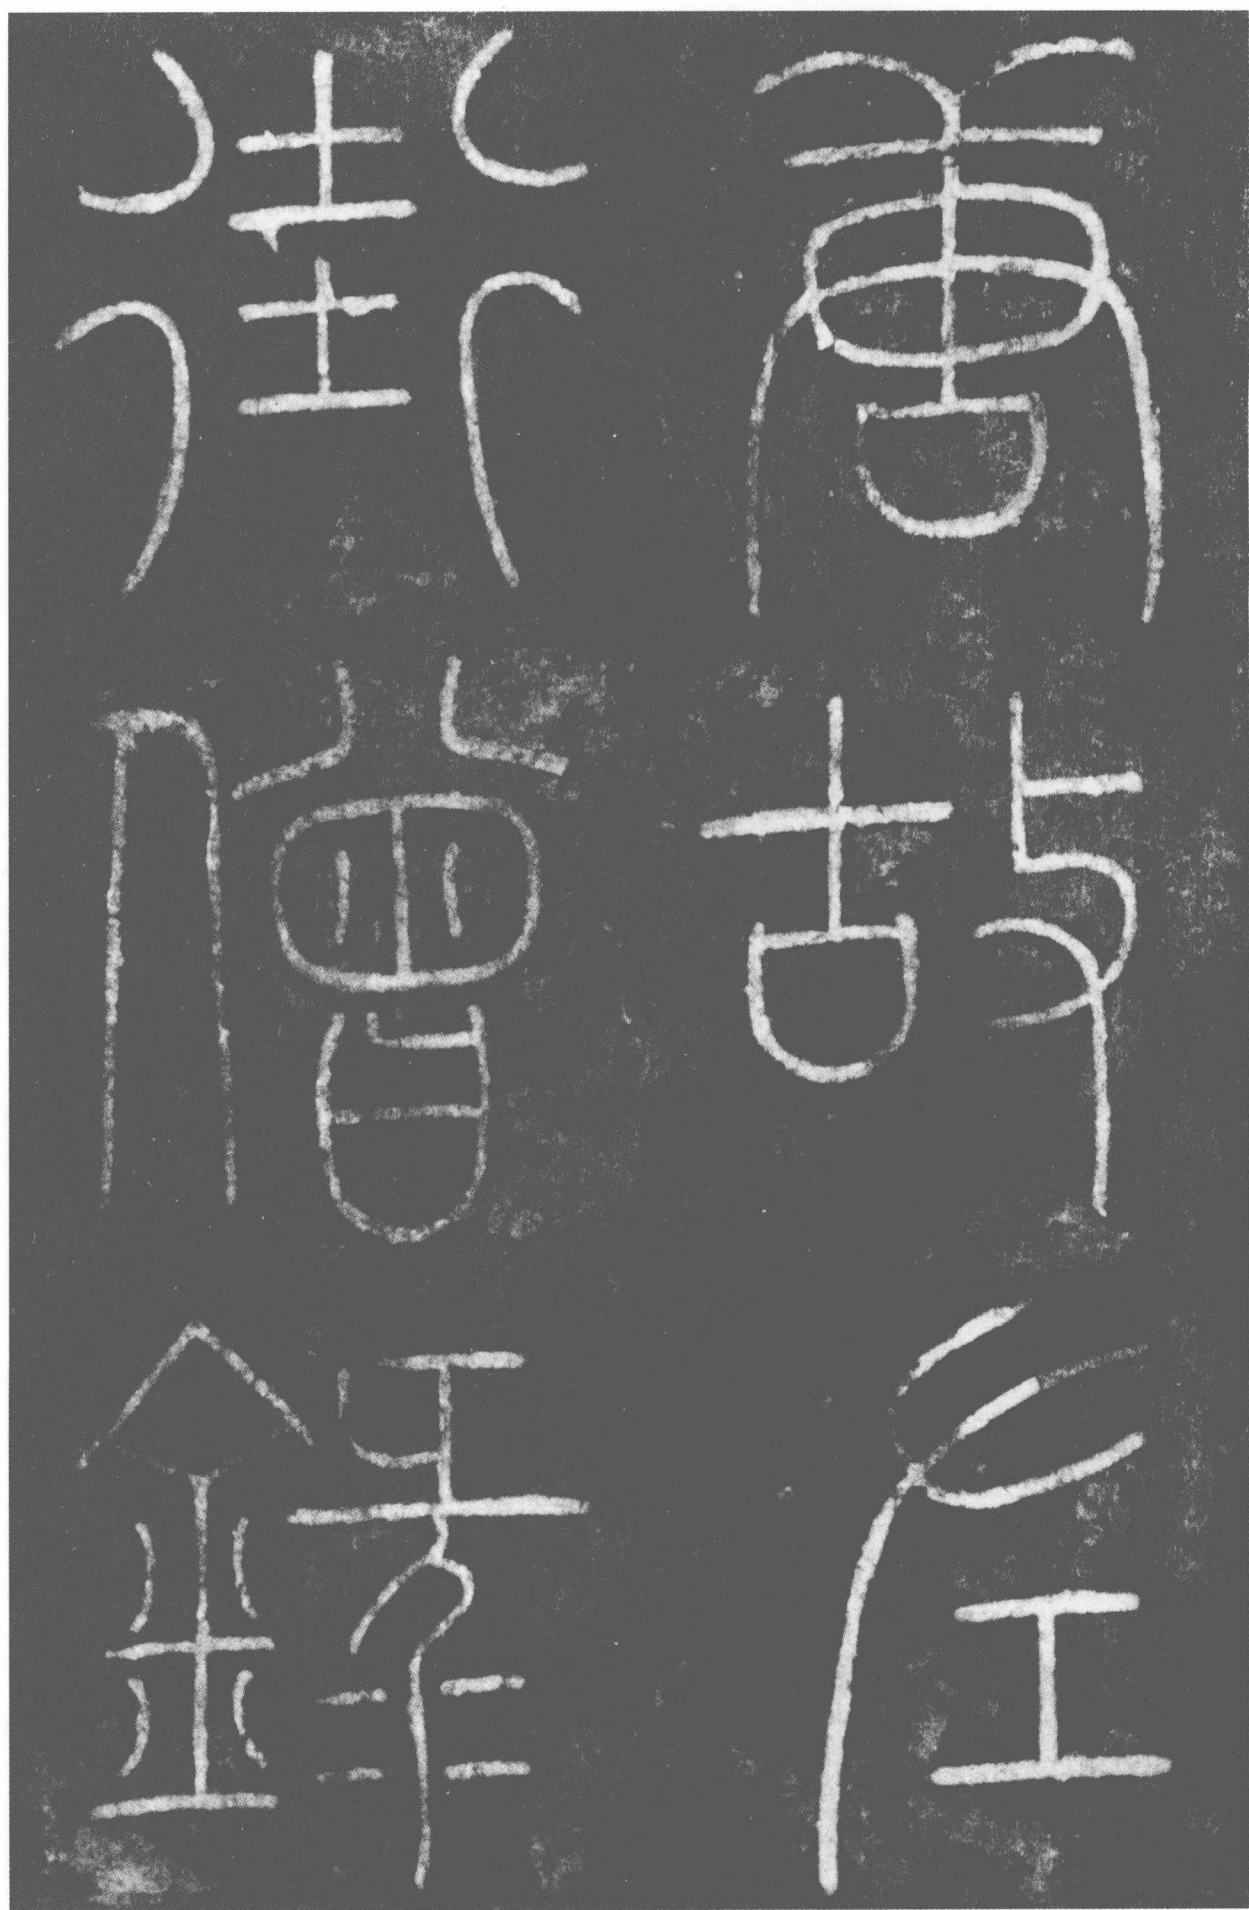 唐故左
街僧錄